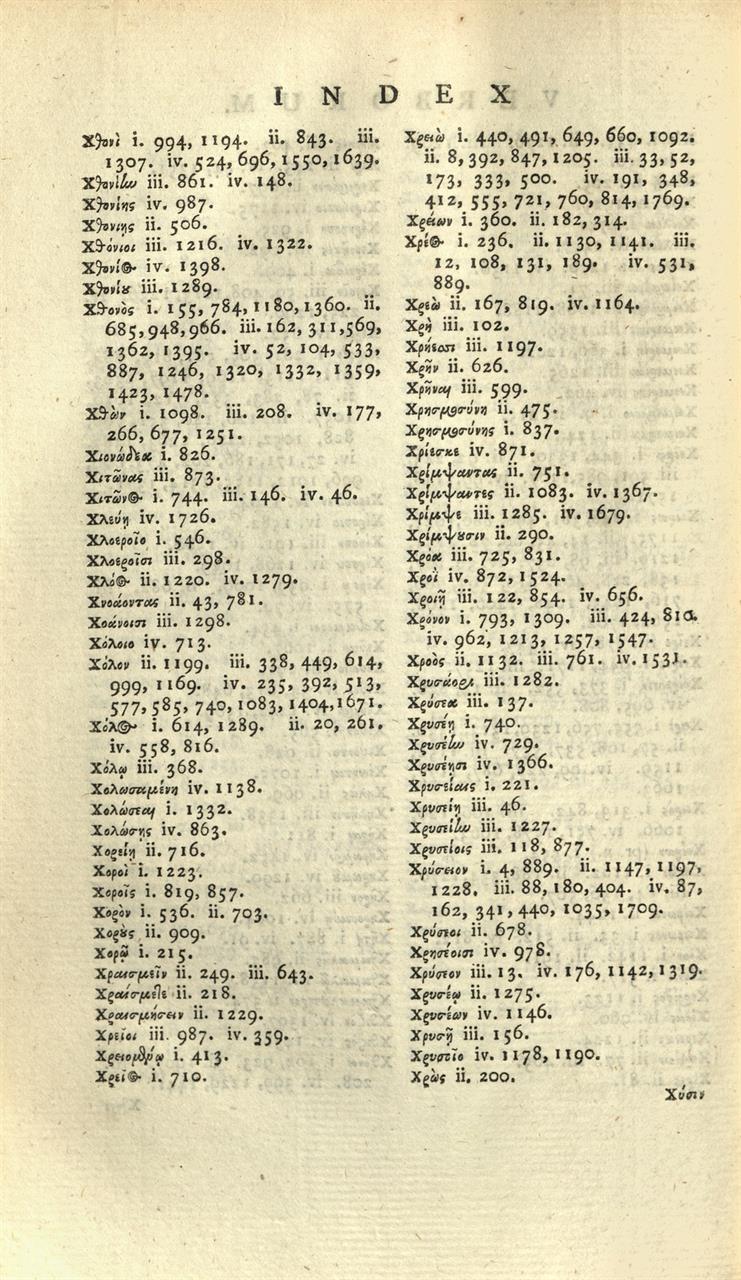 INDEX
Χθονὶ i. 994, 1194. ii. 843. iii.
1307. iv. 524, 696, 1550, 1639.
Χθονίην iii. 861. iv. 148.
Χθονίης iv. 987.
Χθονιης ii. 506.
Χθόνιοι iii. 1216. iv. 1322.
Χθονίος iv. 1398.
Χθονίου iii. 1289.
Χθονὸς i. 155, 784, 1180, 1360. ii.
685, 948, 966. iii. 162, 311, 569,
1362, 1395. iv. 52, 104, 533,
887, 1246, 1320, 1332, 1359,
1423, 1478.
Χθὼν i. 1098. iii. 208. iv. 177,
266, 677, 1251.
Χιονώδεα i. 826.
Χιτῶνας iii. 873.
Χιτῶνος i. 744. iii. 146. iv. 46.
Χλεύη iv. 1726.
Χλοεροῖο i. 546.
Χλοεροῖσι iii. 298.
Χλόος ii. 1220. iv. 1279.
Χνοάοντας ii. 43, 781.
Χοάνοισι iii. 1298.
Χόλοιο iv. 713.
Χόλον ii. 1199. iii. 338, 449, 614,
999, 1169. iv. 235, 392, 513,
577, 585, 740, 1083, 1404, 1671.
Χόλος i. 614, 1289. ii. 20, 261.
iv. 558, 816.
Χόλῳ iii. 368.
Χολωσαμένη iv. 1138.
Χολώσεαι i. 1332.
Χολώσης iv. 863.
Χορείη ii. 716.
Χοροὶ i. 1223.
Χοροῖς i. 819, 857.
Χορὸν i. 536. ii. 703.
Χοροὺς ii. 909.
Χορῷ i. 215.
Χραισμεῖν ii. 249. iii. 643.
Χραίσμετε ii. 218.
Χραισμήσειν ii. 1229.
Χρεῖοι iii. 987. iv. 359.
i. 413.
Χρεῖος i. 710.
Χρειὼ i. 440, 491, 649, 660, 1092.
ii. 8, 392, 847, 1205. iii. 33, 52,
173, 333, 500. iv. 191, 348,
412, 555, 721, 760, 814, 1769.
Χρείων i. 360. ii. 182, 314.
Χρέος i. 236. ii. 1130, 1141. iii.
12, 108, 131, 189. iv. 531,
889.
Χρεὼ ii. 167, 819. iv. 1164.
Χρὴ iii. 102.
Χρήεσσι iii. 1197.
Χρῆν ii. 626.
Χρῆναι iii. 599.
Χρησμοσύνη ii. 475.
Χρησμοσύνης i. 837.
Χρίεσκε iv. 871.
Χρίμψαντας ii. 751.
Χρίμψαντες ii. 1083. iv. 1367.
Χρίμψε iii. 1285. iv. 1679.
Χρίμψουσιν ii. 290.
Χρόα iii. 725, 831.
Χροῒ iv. 872, 1524.
Χροιῆ iii. 122, 854. iv. 656.
Χρόνον i. 793, 1309. iii. 424, 810.
iv. 962, 1213, 1257, 1547.
Χροὸς ii. 1132. iii. 761. iv. 1531.
Χρυσάορι iii. 1282.
Χρύσεα iii. 137.
Χρυσέη i. 740.
Χρυσέην iv. 729.
Χρυσέησι iv. 1366.
Χρυσείαις i. 221.
Χρυσείη iii. 46.
Χρυσείην iii. 1227.
Χρυσείοις iii. 118, 877.
Χρύσειον i. 4, 889. ii. 1147, 1197,
1228. iii. 88, 180, 404. iv. 87,
162, 341, 440, 1035, 1709.
Χρύσεοι ii. 678.
Χρησέοισι iv. 978.
Χρύσεον iii. 13. iv. 176, 1142, 1319.
Χρυσέῳ ii. 1275.
Χρυσέων iv. 1146.
Χρυσῆ iii. 156.
Χρυσοῖο iv. 1178, 1190.
Χρὼς ii. 200.
Χύσιν